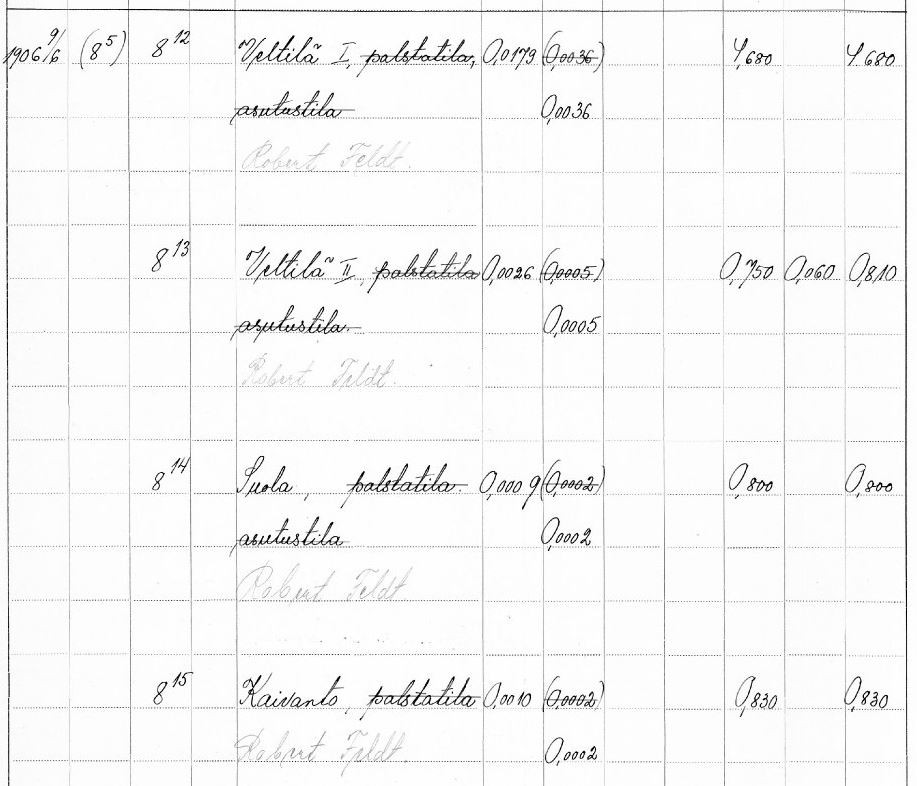 1906 9/6 (8⁵) 8¹² Veltilä I, palstatila, 0,0179 (0,0036) 4,680 4,680
asutustila 0,0036
Robert Feldt.
8¹³ Veltilä II, palstatila 0,0026 (0,0005) 0,750 0,060 0,810
asutustila 0,0005
Robert Feldt.
8¹⁴ Suola, palstatila. 0,0009 (0,0002) 0,800 0,800
asutustila 0,0002
Robert Feldt
8¹⁵ Kaivanto, palstatila 0,0010 (0,0002) 0,830 0,830
Robert Feldt. 0,0002